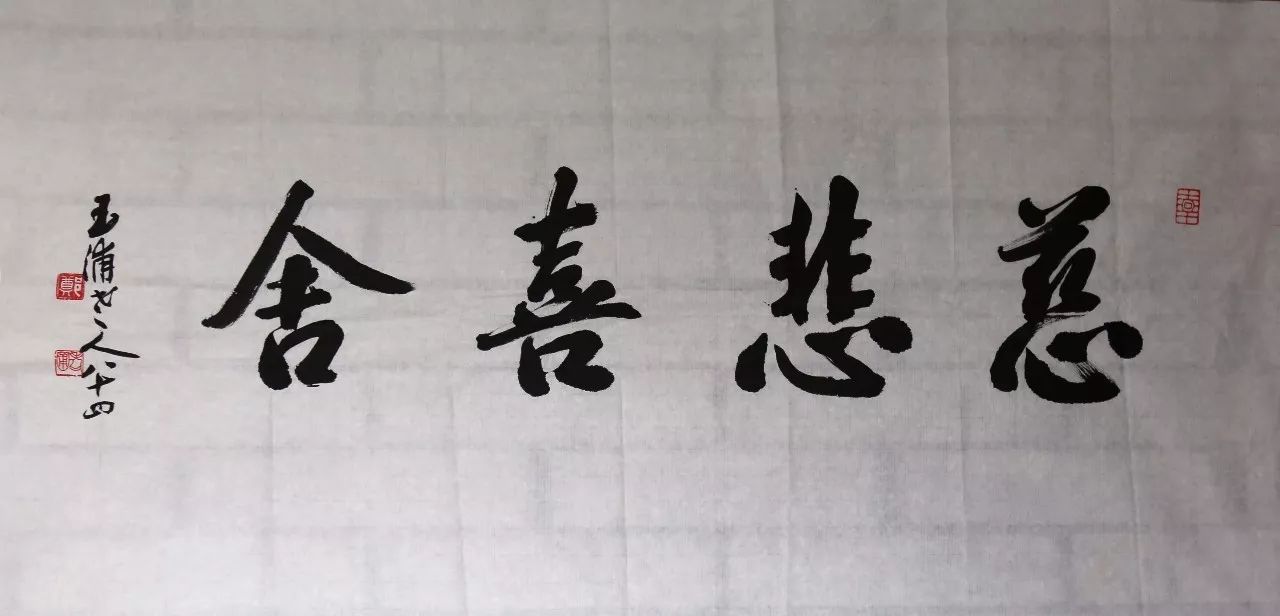 慈悲喜舍
玉浦书人八十四